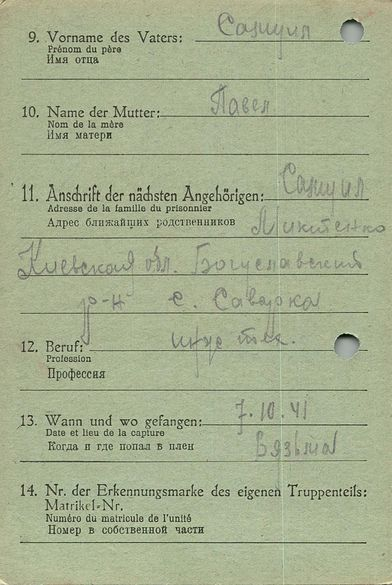 9. Vorname des Vaters: Самуил
Prénom du père
Имя отца
10. Name der Mutter: Павел
Nom de la mère
Имя матери
11. Anschrift der nächsten Angehörigen: Самуил
Adresse de la famille du prisonnier
Адрес ближайших родственников Микитенко
Киевская обл. Богуславский
р-н с. Саварка
12. Beruf:
Profession
Профессия
13. Wann und wo gefangen: 7.10.41
Date et lieu de la capture
Когда и где попал в плен Вязьма
14. Nr. der Erkennungsmarke des eigenen Truppenteils:
Matrikel-Nr.
Numéro du matricule de l'unité
Номер в собственной части